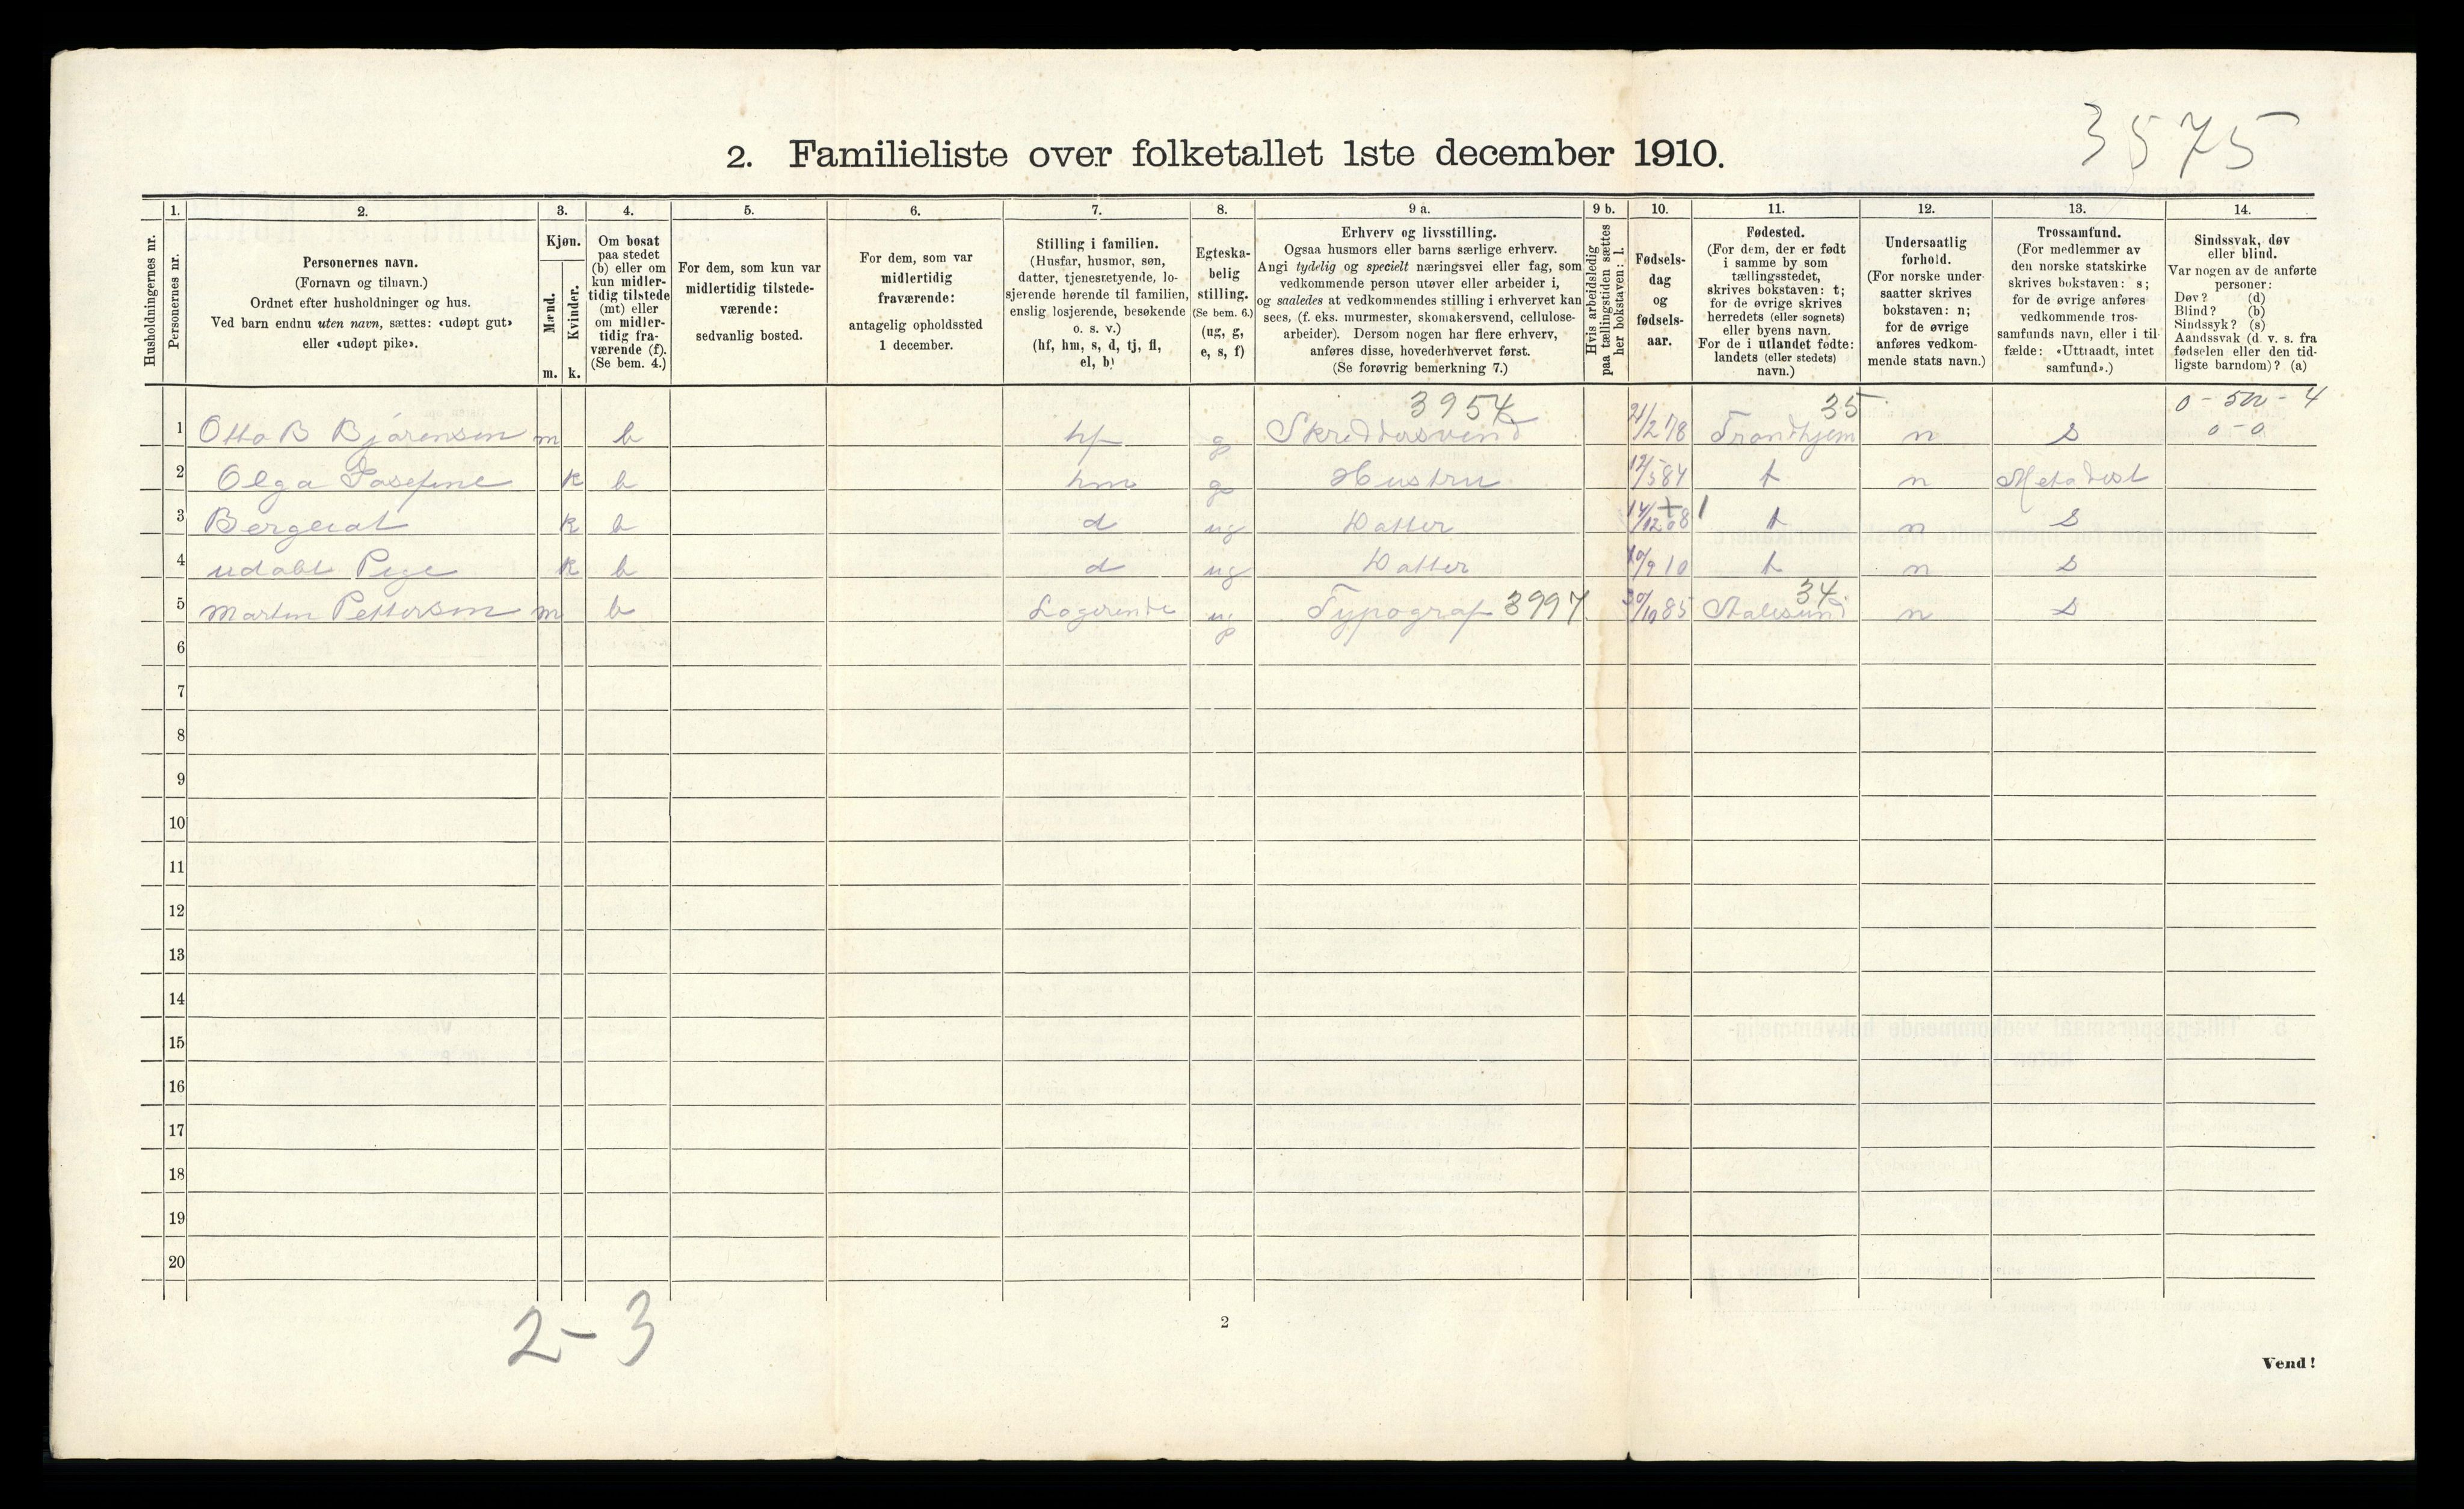 3575
2. Familieliste over folketallet 1ste december 1910.
Husholdningernes nr.
1. Personernes nr.
2. Personernes navn.
(Fornavn og tilnavn.)
Ordnet efter husholdninger og hus.
Ved barn endnu uten navn, sættes: «udøpt gut»
eller «udøpt pike».
3. Kjøn.
Mænd. m.
Kvinder. k.
4. Om bosat
paa stedet
(b) eller om
kun midler-
tidig tilstede
(mt) eller
om midler-
tidig fra-
værende (f).
(Se bem. 4.)
5. For dem, som kun var
midlertidig tilstede-
værende:
sedvanlig bosted.
6. For dem, som var
midlertidig
fraværende:
antagelig opholdssted
1 december.
7. Stilling i familien.
(Husfar, husmor, søn,
datter, tjenestetyende, lo-
sjerende hørende til familien,
enslig losjerende, besøkende
o. s. v.)
(hf, hm, s, d, tj, fl,
el, b)
8. Egteska-
belig
stilling.
(Se bem. 6.)
(ug, g,
e, s, f)
9 a. Erhverv og livsstilling.
Ogsaa husmors eller barns særlige erhverv.
Angi tydelig og specielt næringsvei eller fag, som
vedkommende person utøver eller arbeider i,
og saaledes at vedkommendes stilling i erhvervet kan
sees, (f. eks. murmester, skomakersvend, cellulose-
arbeider). Dersom nogen har flere erhverv,
anføres disse, hovederhvervet først.
(Se forøvrig bemerkning 7.)
9 b. Hvis arbeidsledig
paa tællingstiden sættes
her bokstaven: l.
10. Fødsels-
dag
og
fødsels-
aar.
11. Fødested.
(For dem, der er født
i samme by som
tællingsstedet,
skrives bokstaven: t;
for de øvrige skrives
herredets (eller sognets)
eller byens navn.
For de i utlandet fødte:
landets (eller stedets)
navn.)
12. Undersaatlig
forhold.
(For norske under-
saatter skrives
bokstaven: n;
for de øvrige
anføres vedkom-
mende stats navn.)
13. Trossamfund.
(For medlemmer av
den norske statskirke
skrives bokstaven: s;
for de øvrige anføres
vedkommende tros-
samfunds navn, eller i til-
fælde: «Uttraadt, intet
samfund».)
14. Sindssvak, døv
eller blind.
Var nogen av de anførte
personer:
Døv? (d)
Blind? (b)
Sindssyk? (s)
Aandssvak (d. v. s. fra
fødselen eller den tid-
ligste barndom)? (a)
3954 35 0-0
1 Otto B Bjørensen m b hf g Skreddersvend 21/2 78 Trondhjem n s
2 Olga Josefine k b hm g Hustru 12/5 84 t n Metodist
3 Bergliot k b d ug Datter 14/12 08 t n s
4 udøbt Pige k b d ug Datter 10/9 10 t n s
5 Martin Pettersen m b Logerende ug Typograf 3997 30/10 85 Aalesund 34 n s
6
7
8
9
10
11
12
13
14
15
16
17
18
19
20
2-3
2
Vend!